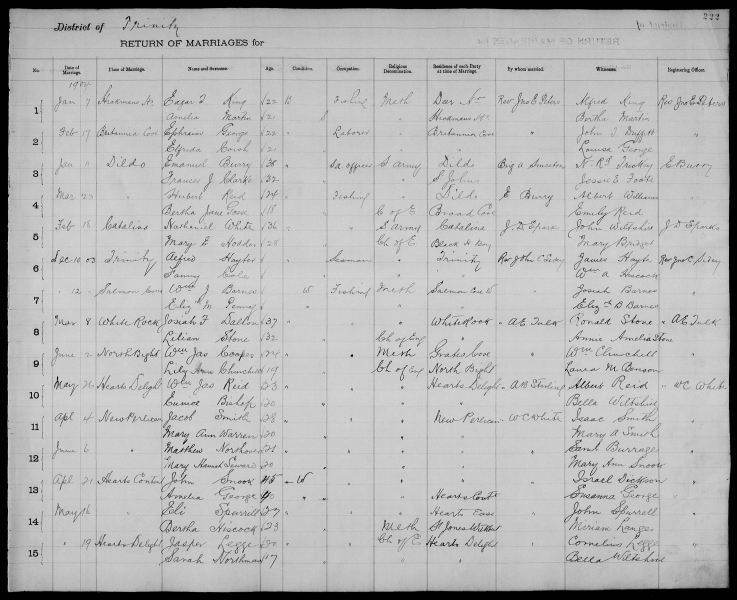 222
District of Trinity
RETURN OF MARRIAGES for
No. Date of Marriage. Place of Marriage. Name and Surname. Age. Condition. Occupation. Religious Denomination. Residence of each Party at time of Marriage. By whom married. Witnesses. Registering Officer.
1904
1 Jan 7 Edgar King 22 B Fishing Meth Rev Jno E Peters Alfred King Rev Jno E Peters
Amelia Martin 21 S " Bertha Martin
2 Feb 17 Britannia Cove Ephraim George 22 " Laborer " Britannia Cove " John
Elfrida 21 " " Louisa George
3 Jan 11 Dildo Emanuel Burry 28 " Sa. officer S Army Dildo N. Rd E Burry
Frances J Clarke 32 " " S Johns Jessie E Foote
4 Mar 23 " Herbert Reid 24 " Fishing " Dildo E Burry Albert Williams "
Bertha Jane 18 " C of E Broad Cove Emily Reid
5 Feb 18 Catalina Nathaniel White 36 " " S Army Catalina J. D. Sparks John Wiltshire J D Sparks
Mary E Hodder 28 " Ch of E Mary
6 Dec 10 03 Trinity Alfred Hayter " Seaman " Trinity Rev John C James Hayter Rev Jno C
Fanny " " Wm A Hiscock
7 " 12 Salmon Cove Wm J Barnes W Fishing Meth Salmon Cove " Josiah Barnes
Eliz M Penny " " Eliz th B Barnes
8 Mar 8 White Rock Josiah F Dalton 37 " " " White Rock " A E Tulk Ronald Stone " A E Tulk
Lilian Stone 32 " Ch of Eng " Annie Amelia Stone
9 June 2 North Bight Wm Jas Cooper 24 " " Meth Grates Cove " Wm Churchill
Lily Ann Churchill 19 " Ch of Eng North Bight Laura M Benson
10 May 26 Hearts Delight Wm Jas Reid 23 " " " Hearts Delight " A B Stirling Albert Reid " W C White
Eunice Bishop 20 " " " Bella Wiltshire
11 Apl 4 New Perlican Jacob Smith 28 " " " New Perlican " W C White Isaac Smith "
Mary Ann Warren 20 " " " Mary A Smith
12 June 6 " Matthew 21 " " " " " Saml Burrage "
Mary Hannah Seward 20 " " " Mary Ann Snook
13 Apl 21 Hearts Content John Snook 45 W " " " " Israel Dickson "
Amelia George 40 " " Hearts Cont Susanna George
14 May 16 " Eli Spurrell 27 " " " Hearts Ease " John Spurrell "
Bertha Hiscock 23 " Meth St Jones Without Miriam
15 " 19 Hearts Delight Jasper Legge 20 " " Ch of E Hearts Delight " Cornelius Legge "
Sarah 17 " " " Bella Wiltshire